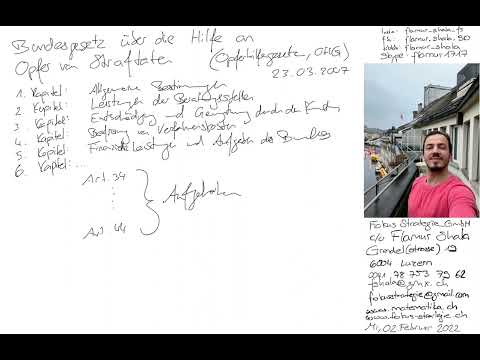 Bundesgesetz über die Hilfe an
Opfer von Straftaten (Opferhilfegesetz, OHG)
23.03.2007
1. Kapitel: Allgemeine Bestimmungen
2. Kapitel: Leistungen der Beratungsstellen
3. Kapitel: Entschädigung und Genugtuung durch den Kanton
4. Kapitel: Befreiung von Verfahrenskosten
5. Kapitel: Finanzielle Leistungen und Aufgaben des Bundes
6. Kapitel: ...
Art. 34
Art. 44
Aufgehoben
flamur_shala_fs
flamur_shala_SO
flamur_shala
Skype: flamur1717
Fokus Strategie GmbH
c/o Flamur Shala
Grendel(strasse) 19
6004 Luzern
0041 78 753 79 62
fshala@gmx.ch
fokusstrategie@gmail.com
www.matematika.ch
www.fokus-strategie.ch
Mi, 02. Februar 2022